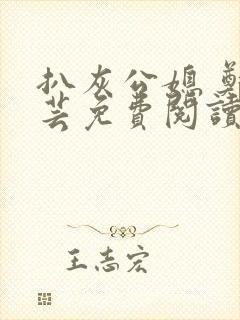 扒灰公媳
芸免費閱讀
王志宏